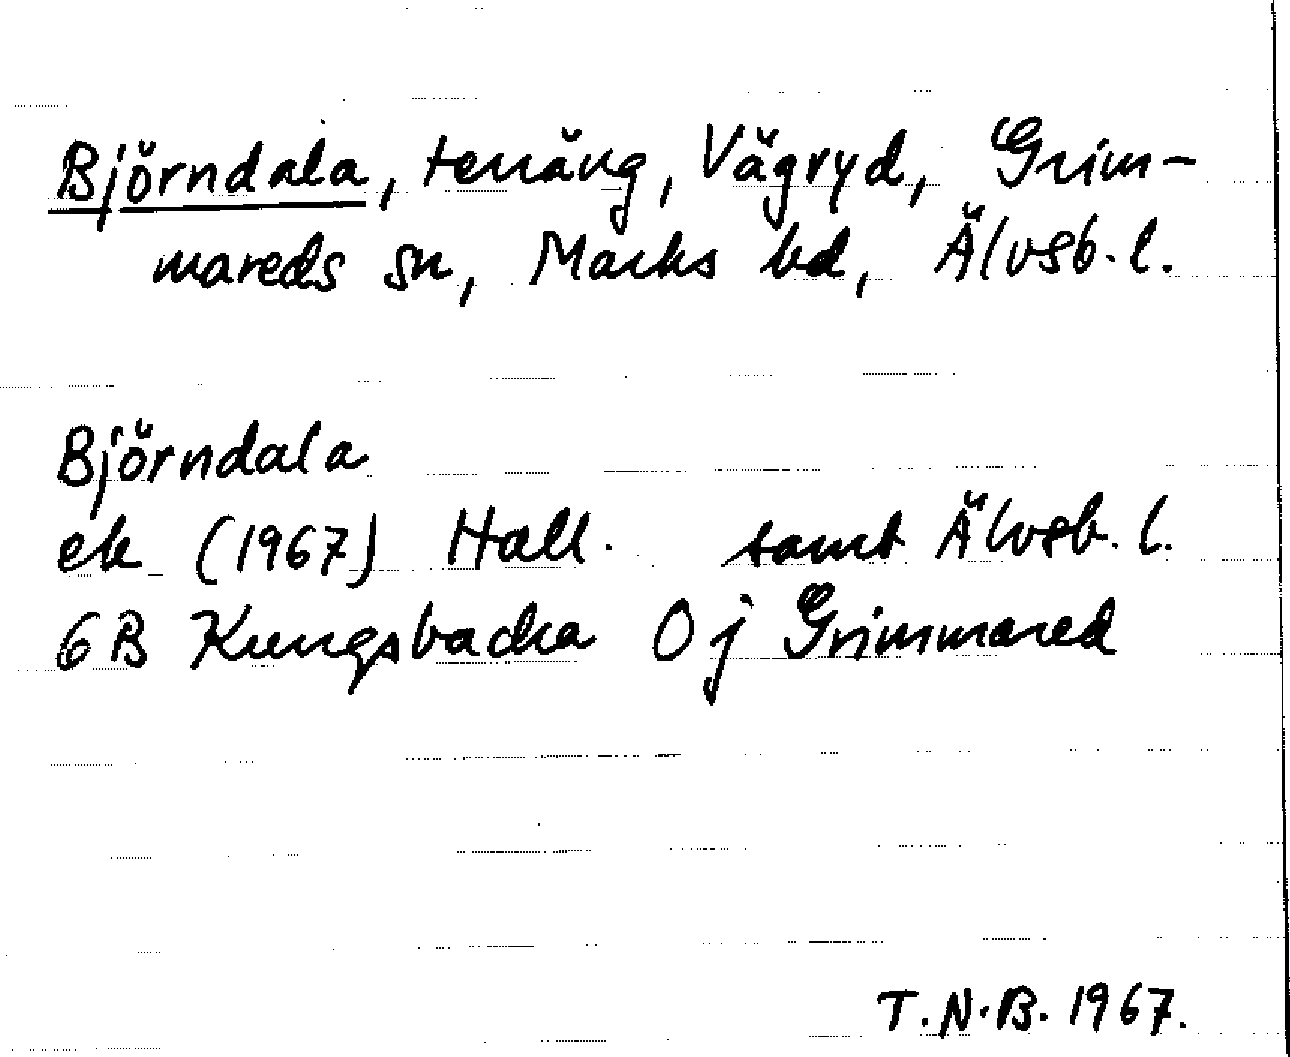 Björndala, terräng, Vägryd, Grim-
mareds sn, Marks hd, Älvsb. l.
Björndala
ek (1967) Hall. samt Älvsb. l.
6B Kungsbacka 0j Grimmared
T.N.B. 1967.